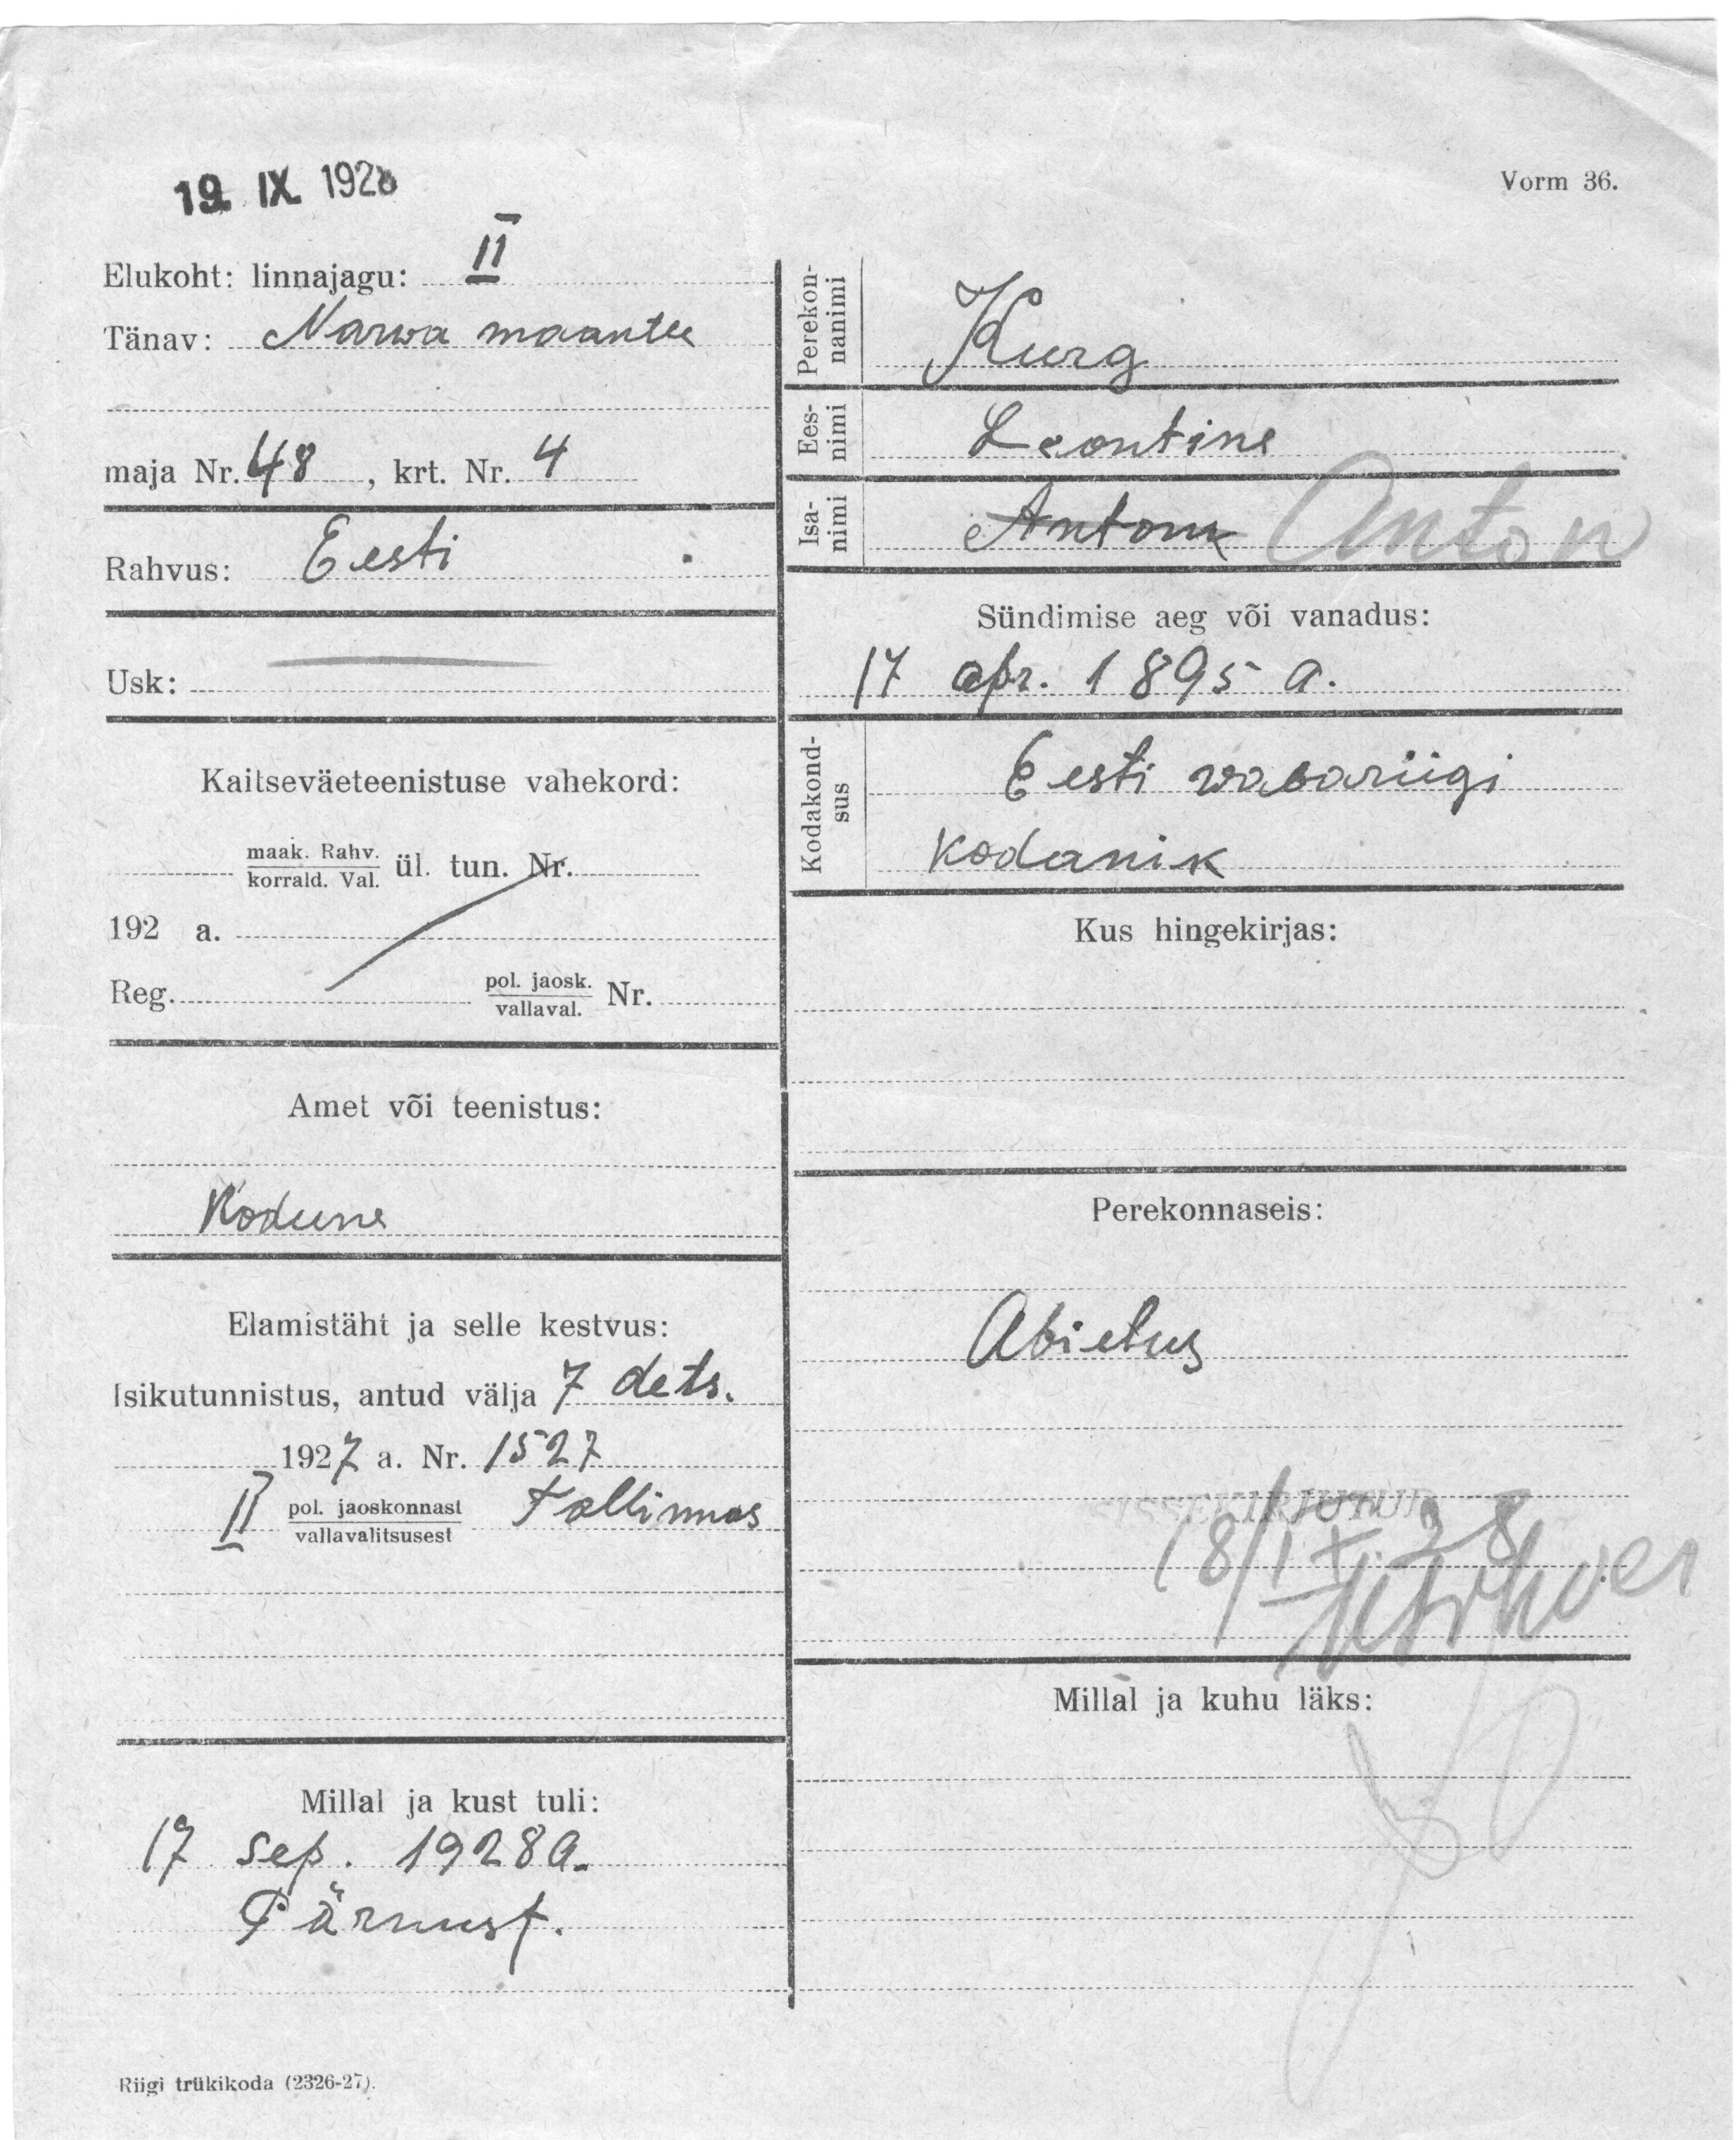 19. IX. 1928
Vorm 36.
Elukoht: linnajagu: II
Tänav: Narwa maantee
maja Nr. 48, krt. Nr. 4
Rahvus: Eesti
Usk:
Kaitseväeteenistuse vahekord:
maak. Rahv.
korrald. Val.
ül. tun. Nr.
192 a.
Reg. pol. jaosk. Nr.
vallaval.
Amet või teenistus:
Kodune
Elamistäht ja selle kestvus:
Isikutunnistus, antud välja 7 dets.
1927 a. Nr. 1527
II pol. jaoskonnast Tallinnas
vallavalitsusest
Millal ja kust tuli:
17 sep. 1928 a.
Pärnust.
Perekon-
nanimi
Kurg
Ees-
nimi
Leontine
Isa-
nimi
Anton
Sündimise aeg või vanadus:
17 apr. 1895 a.
Kodakond-
sus
Eesti wabariigi
kodanik
Kus hingekirjas:
Perekonnaseis:
Abielus
SISSEKIRJUTUD
18/IX 28
Millal ja kuhu läks:
Riigi trükikoda (2326-27).